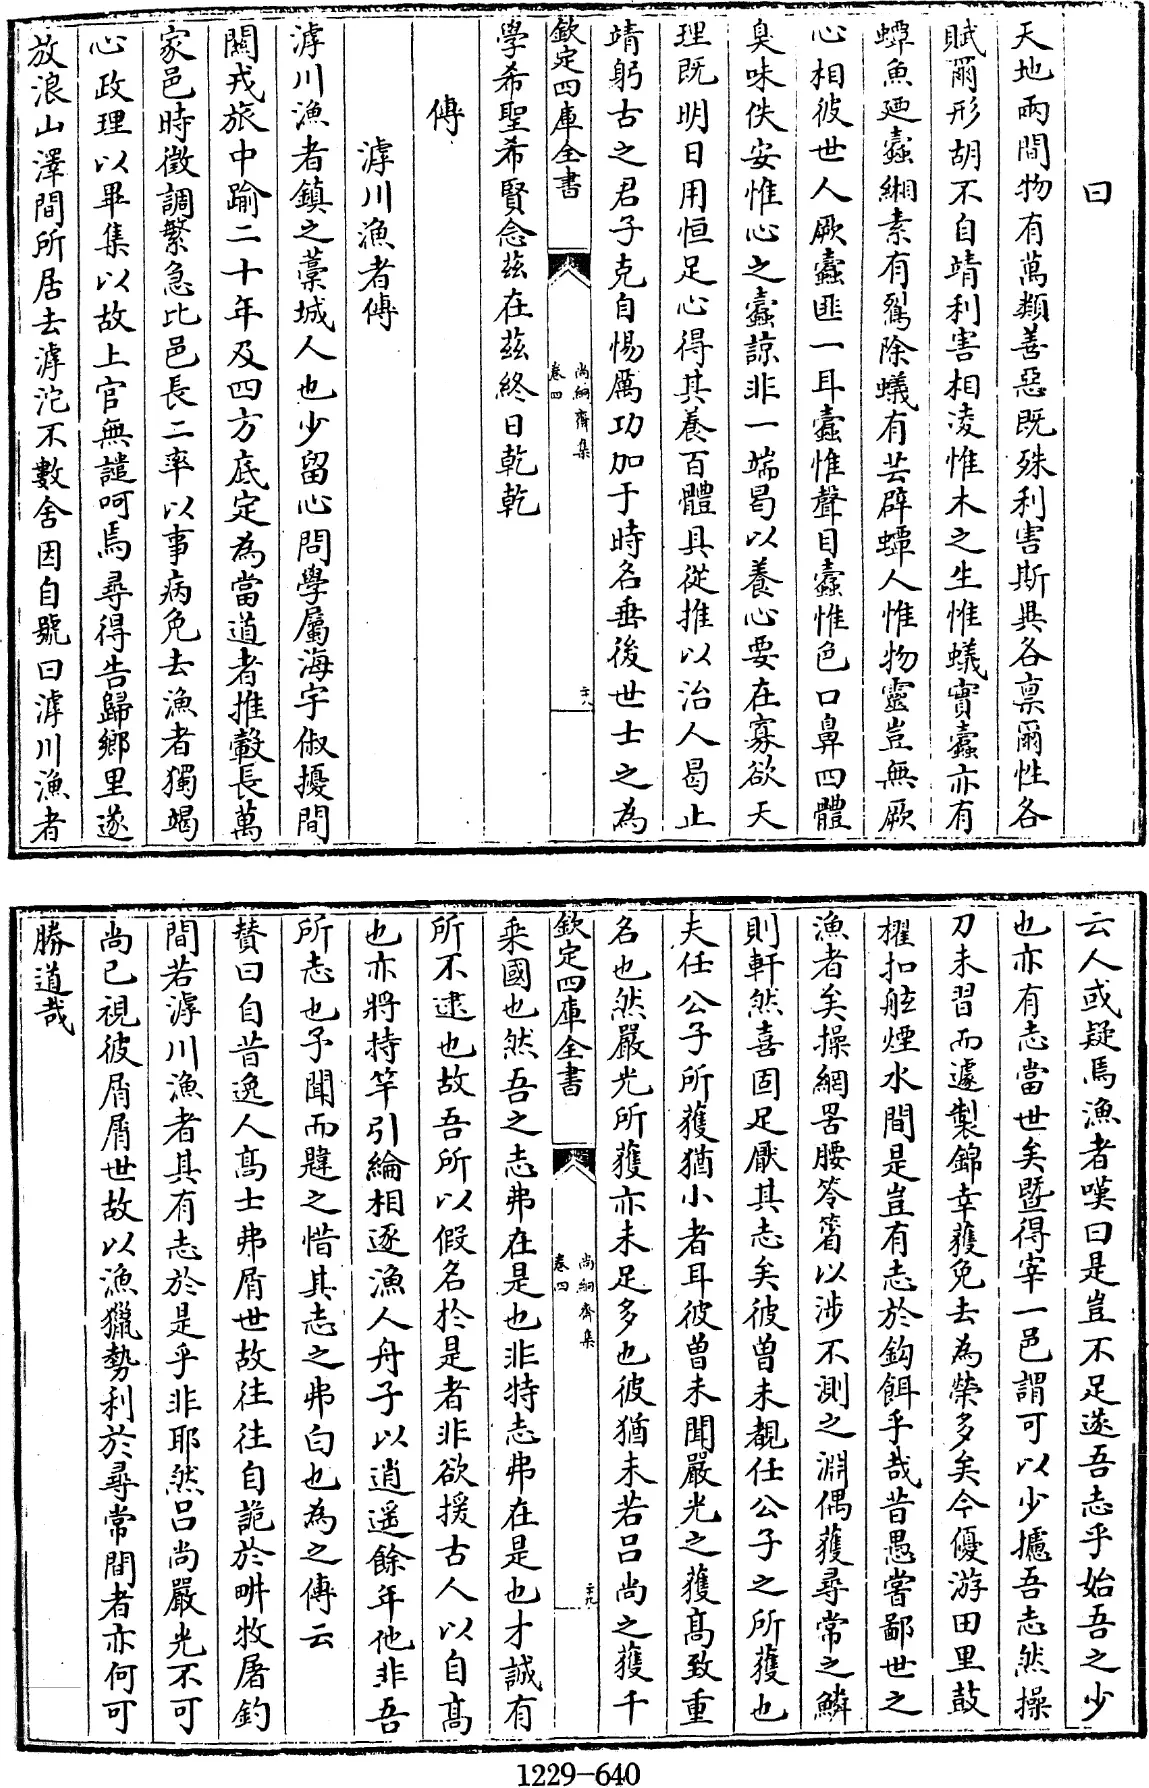 曰
天地兩間物有萬類善惡既殊利害斯興各禀爾性各
賦爾形胡不自靖利害相凌惟木之生惟蟻實蠧亦有
蟫魚廼蠧緗素有鴷除蟻有芸辟蟫人惟物靈豈無厥
心相彼世人厥蠧匪一耳蠧惟聲目蠧惟色口鼻四體
臭味佚安惟心之蠧諒非一端曷以養心要在寡欲天
理既明日用恒足心得其養百體具從推以治人曷止
靖躬古之君子克自惕厲功加于時名垂後世士之為
欽定四庫全書
尚絅齋集
卷四
二十八
學希聖希賢念兹在兹終日乾乾
傳
滹川漁者傳
滹川漁者鎮之藁城人也少留心問學屬海宇俶擾間
關戎旅中踰二十年及四方底定為當道者推轂長萬
家邑時徵調繁急比邑長二率以事病免去漁者獨竭
心政理以畢集以故上官無譴呵焉尋得告歸鄉里遂
放浪山澤間所居去滹沱不數舍因自號曰滹川漁者
云人或疑焉漁者嘆曰是豈不足遂吾志乎始吾之少
也亦有志當世矣暨得宰一邑謂可以少攄吾志然操
刀未習而遽製錦幸獲免去為榮多矣今優游田里鼓
櫂扣舷煙水間是豈有志於鈎餌乎哉昔愚嘗鄙世之
漁者矣操網罟腰笭箵以涉不測之淵偶獲尋常之鱗
則軒然喜固足厭其志矣彼曾未覩任公子之所獲也
夫任公子所獲猶小者耳彼曽未聞嚴光之獲髙致重
名也然嚴光所獲亦未足多也彼猶未若吕尚之獲千
欽定四庫全書
尚絅齋集
卷四
二十九
乗國也然吾之志弗在是也非特志弗在是也才誠有
所不逮也故吾所以假名於是者非欲援古人以自髙
也亦將持竿引綸相逐漁人舟子以逍遥餘年他非吾
所志也予聞而韙之惜其志之弗白也為之傳云
贊曰自昔逸人髙士弗屑世故往往自詭於畊牧屠釣
間若滹川漁者其有志於是乎非耶然吕尚嚴光不可
尚已視彼屑屑世故以漁獵勢利於尋常間者亦何可
勝道哉
1229-640